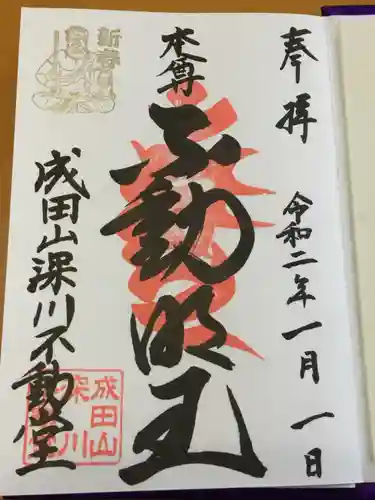 奉拝
令和二年一月一日
本尊
不動明王
新春
成田山深川不動堂
成田山
深川